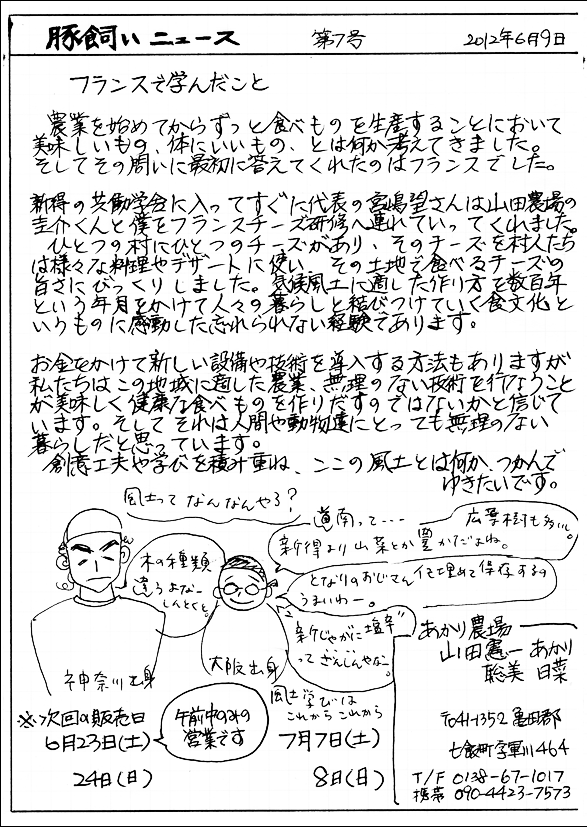 豚飼いニュース 第7号 2012年6月9日
フランスで学んだこと
農業を始めてからずっと食べものを生産することにおいて
美味しいもの、体にいいもの、とは何か考えてきました。
そしてその問いに最初に答えてくれたのはフランスでした。
新得の共働学舎に入ってすぐに代表の宮嶋望さんは山田農場の
圭介くんと僕をフランスチーズ研修へ連れていってくれました。
ひとつの村にひとつのチーズがあり、そのチーズを村人たち
は様々な料理やデザートに使い、その土地で食べるチーズの
旨さにびっくりしました。気候風土に適した作り方を数百年
という年月をかけて人々の暮らしと結びつけていく食文化と
いうものに感動した忘れられない経験であります。
お金をかけて新しい設備や技術を導入する方法もありますが
私たちはこの地域に適した農業、無理のない技術を行なうこと
が美味しく健康な食べものを作りだすのではないかと信じて
います。そしてそれは人間や動物達にとっても無理のない
暮らしだと思っています。
創意工夫や学びを積み重ね、ここの風土とは何か、つかんで
ゆきたいです。
風土ってなんなんやろ?
道南って・・・
広葉樹も多いし。
新得より山菜とか豊かだよね。
木の種類
違うよなー
しんとくと。
となりのおじさん
イモ埋めて保存するの
うまいわー。
新じゃがに塩辛
ってざんしんやなー。
神奈川出身
大阪出身
風土学びは
これから これから
あかり農場
山田憲一 あかり
聡美 日菜
※次回の販売日
6月23日(土)
24日(日)
午前中のみの
営業です
7月7日(土)
8日(日)
〒041-1352 亀田郡
七飯町字軍川464
T/F 0138-67-1017
携帯 090-4423-7573